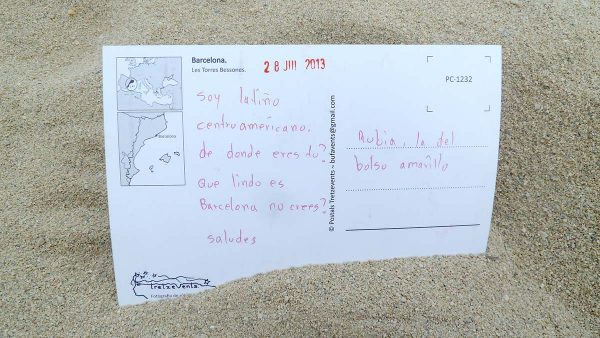 Barcelona.
Les Torres Bessones.
28 JUI 2013
PC-1232
Barcelona
soy latiño
centroaméricano,
de donde eres tu?
Que lindo es
Barcelona no crees?
saludes
© Postals Tretzevents ~ bufavents@gmail.com
Rubia, la del
bolso amarillo
tretzevents